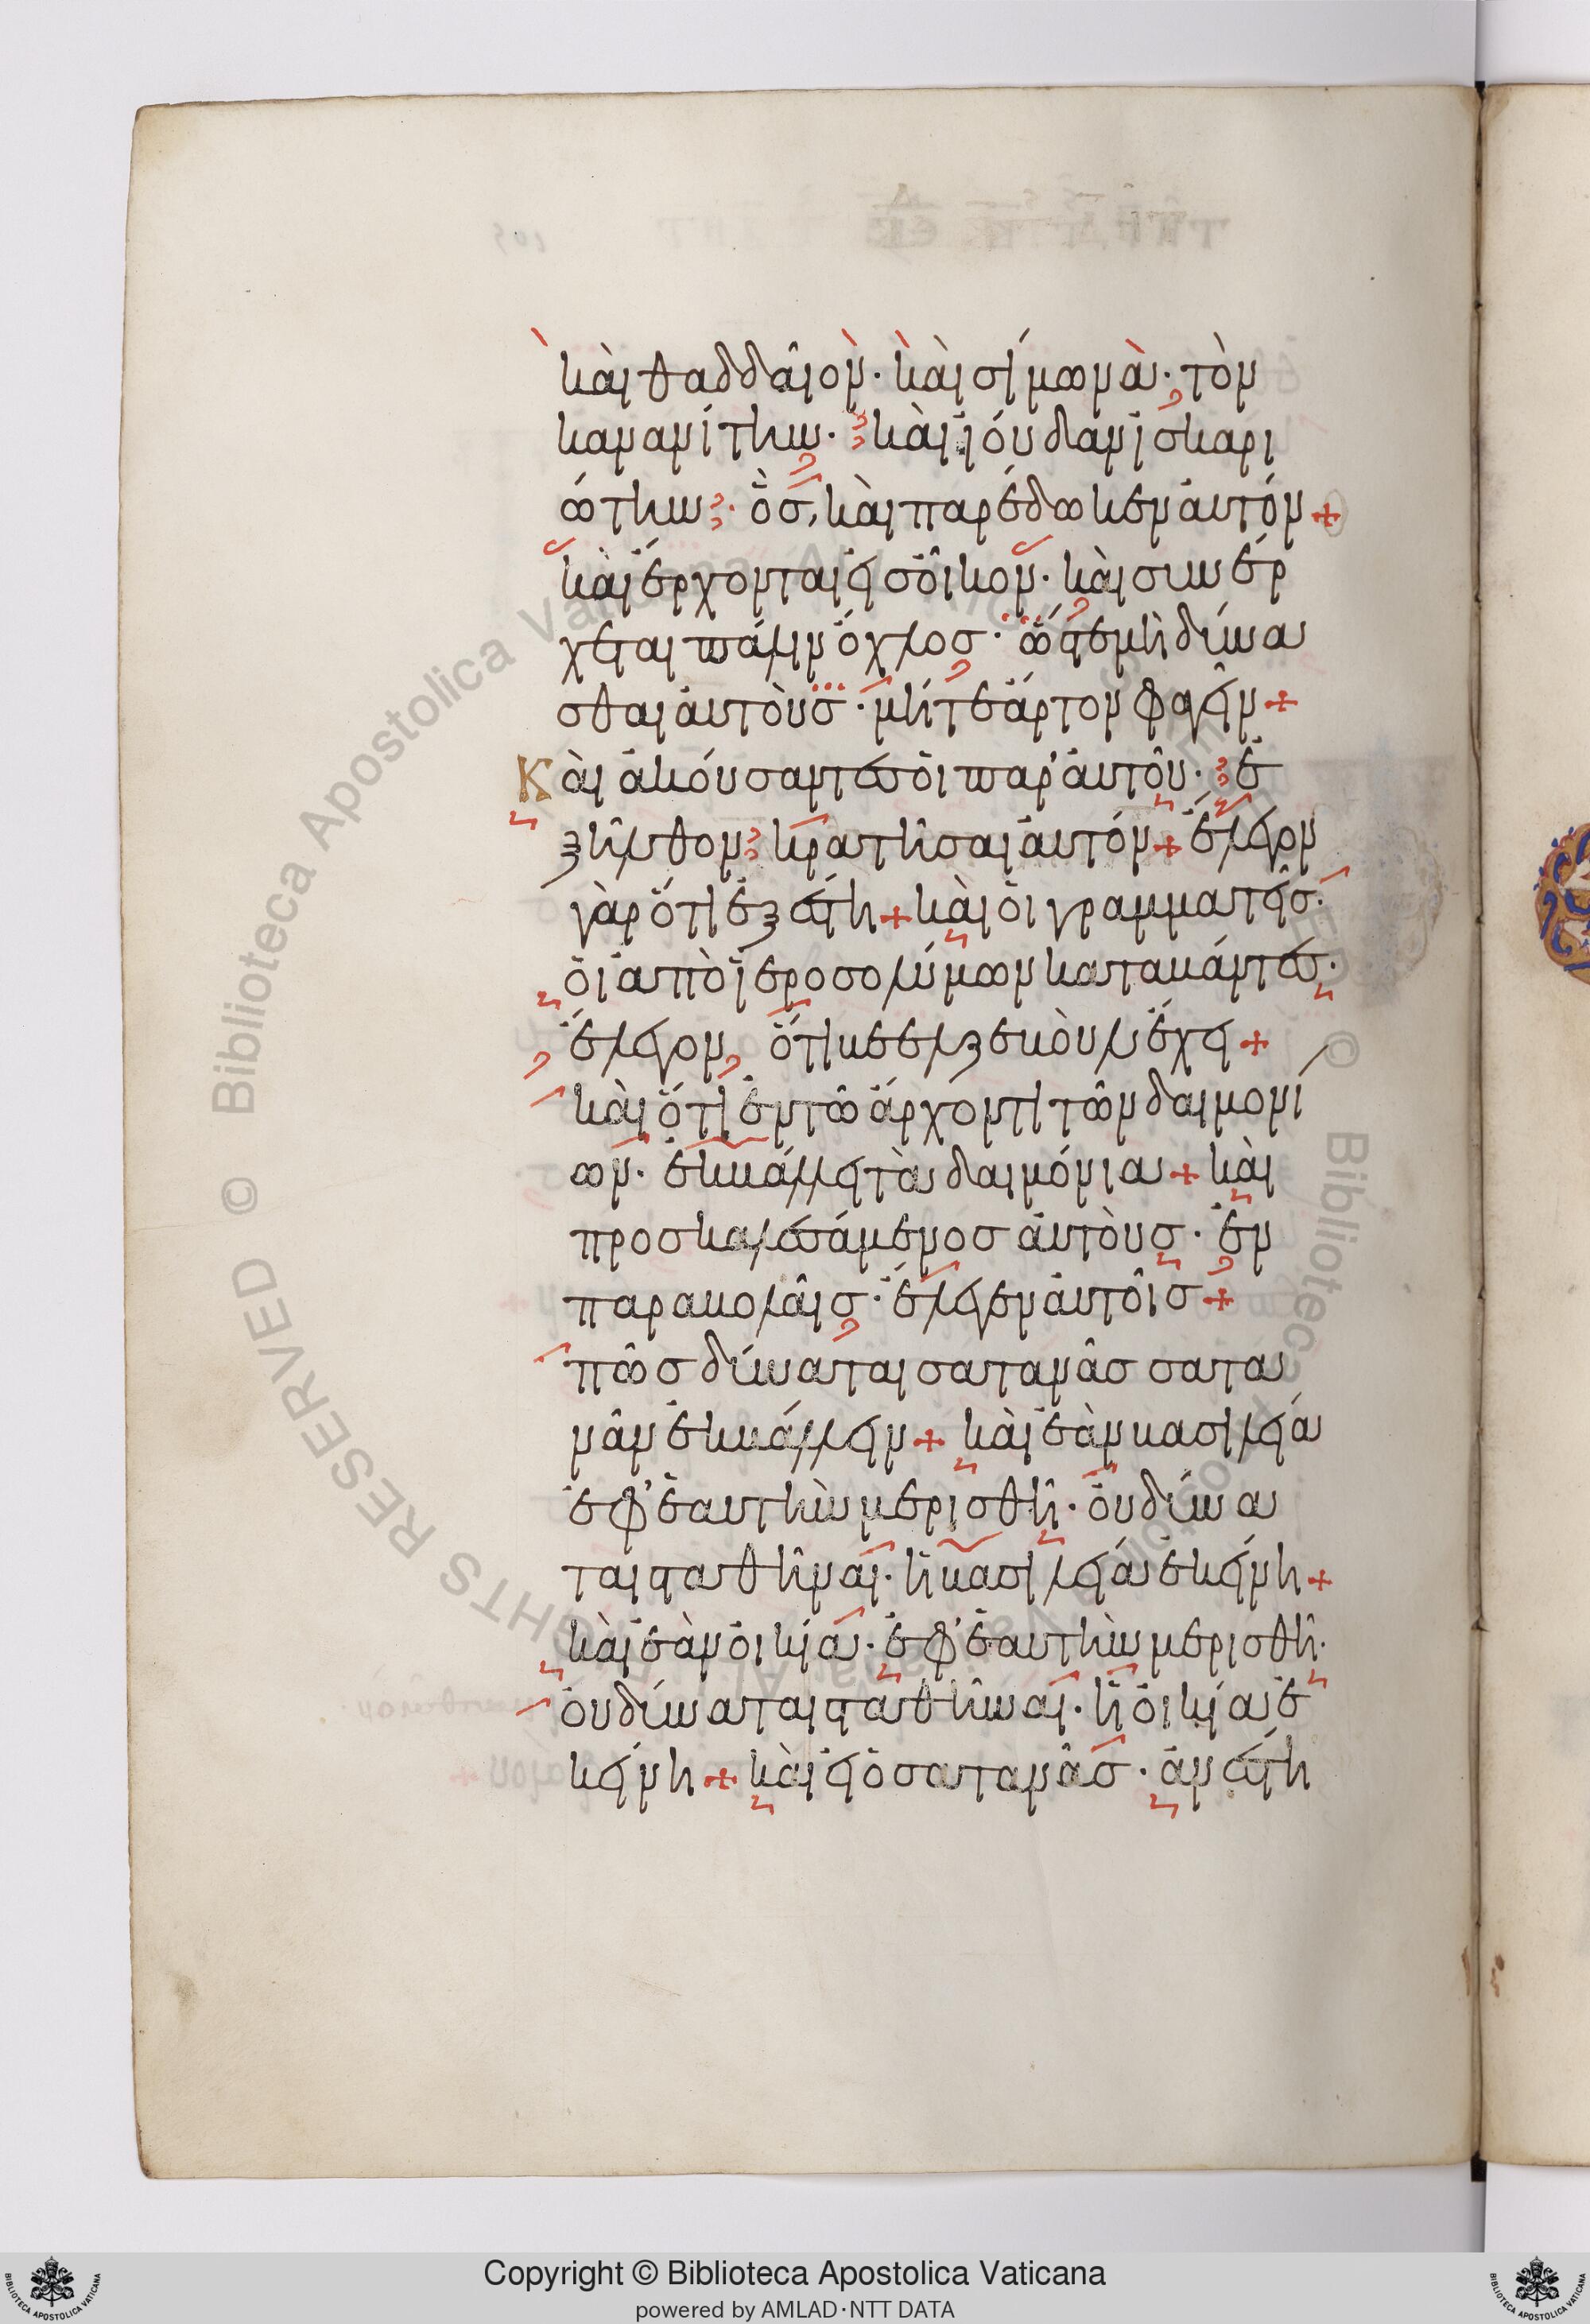 καὶ θαδδαῖον· καὶ σίμωνα· τὸν
κανανίτην· καὶ ἰούδαν ἰσκαρι
ώτην· ὃς, καὶ παρέδωκεν αὐτόν +
καὶ ἔρχονται εἰς οἶκον· καὶ συνέρ
χεται πάλιν ὄχλος· ὥστε μὴ δύνα
σθαι αὐτοὺς· μήτε ἄρτον φαγεῖν +
Καὶ ἀκούσαντες οἱ παρ' αὐτοῦ· ἐ
ξῆλθον κρατῆσαι αὐτόν + ἔλεγον
γὰρ ὅτι ἐξέστη + καὶ οἱ γραμματεῖς·
οἱ ἀπὸ ἱεροσολύμων καταβάντες·
ἔλεγον, ὅτι βεελζεβοὺλ ἔχει +
καὶ ὅτι ἐν τῶ ἄρχοντι τῶν δαιμονί
ων· ἐκβάλλει τὰ δαιμόνια + καὶ
προσκαλεσάμενος αὐτοὺς· ἐν
παραβολαῖς· ἔλεγεν αὐτοῖς +
πῶς δύναται σατανᾶς σατα
νᾶν ἐκβάλλειν + καὶ ἐὰν βασιλεία
ἐφ' ἑαυτὴν μερισθῆ· οὐ δύνα
ται σταθῆναι· ἡ βασιλεία ἐκείνη +
καὶ ἐὰν οἰκία· ἐφ' ἑαυτὴν μερισθῆ·
οὐ δύναται σταθῆναι· ἡ οἰκία ἐ
κείνη + καὶ εἰ ὁ σατανᾶς· ἀνέστη
Copyright © Biblioteca Apostolica Vaticana
powered by AMLAD·NTT DATA